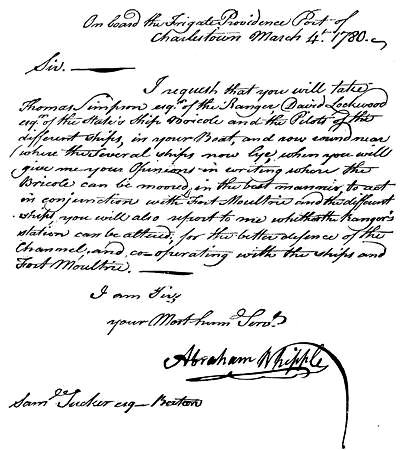 On board the Frigate Providence Port of
Charlestown March 4th 1780.
Sir.
I request that you will take
Thomas Simpson esqr. of the Ranger, David Lockwood
esqr. of the State's Ship Bricole and the Pilots of the
different ships, in your Boat, and row round near
where the several ships now lye, when you will
give me your Opinions in writing where the
Bricole can be moored, in the best manner, to act
in conjunction with Fort Moultrie and the different
ships, you will also report to me whether the Ranger's
station can be altered, for the better defence of the
Channel, and co-operating with the ships and
Fort Moultrie.
I am Sir,
your Most humle Servt.
Abraham Whipple
Saml. Tucker esq - Boston